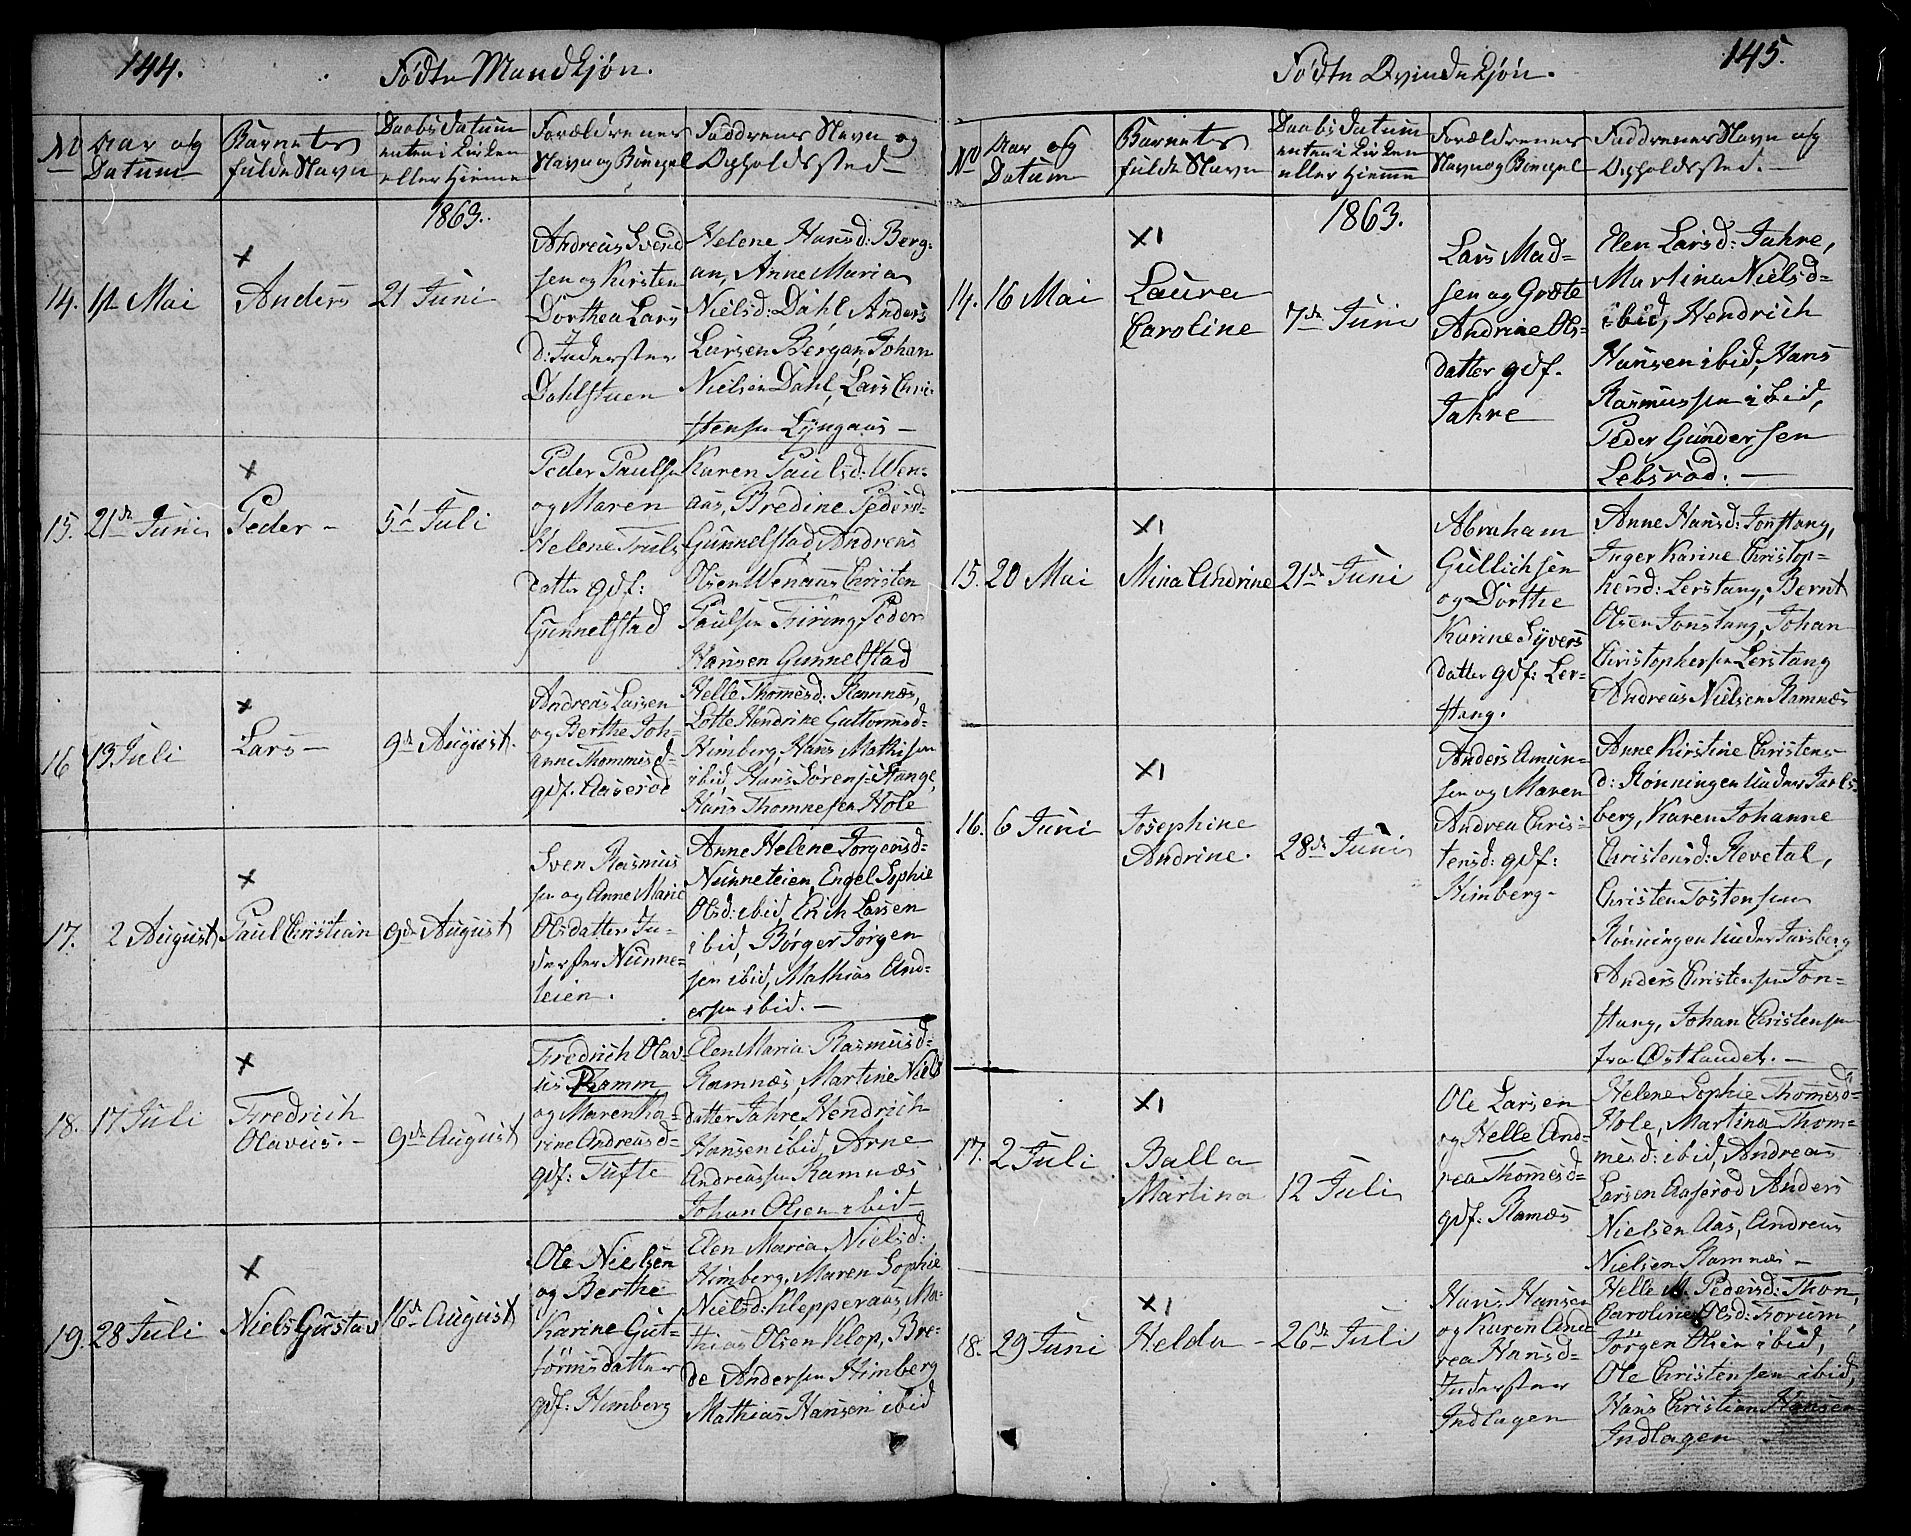 144.
Födte Mandkjøn.
No
Aar og
Datum
Barnets
fulde Navn
Daabs Datum
enten i Kirken
eller Hjemme
Forældrenes
Navn og Bopæl
Faddrenes Navn og
Opholdssted
1863.
14. 1ste Mai
×
Anders
21 Juni
Andreas Svend
sen og Kirsten
Dorthea Lars
d: Inderster
Dahlstuen
Helene Hansd: Berg-
an, Anne Maria
Nielsd: Dahl Anders
Larsen Bergan Johan
Nielsen Dahl, Lars Chri-
stensen Lÿngaas –
15. 21de Juni
×
Peder –
5t Juli
Peder Paulsen
og Maren
Helene Truls
datter gdf:
Gunnelstad
Karen Paulsd: Wen-
aas, Bredine Pedersd-
Gunnelstad Andreas
Olsen Wenaas Christen
Paulsen Firing Peder
Hansen Gunnelstad
16 13 Juli
×
Lars –
9de August.
Andreas Larsen
og Berthe Joh-
anne Thommesd-
gdf: Aaserod
Helle Thomesd: Ramnæs,
Lotte Hendrike Guttormsd-
Himberg, Hans Mathisen
ibid, Hans Sörens: Stange,
Hans Thomnesen Hole
17. 2 August
×
Paul Christian
9de August
Sven Rasmus
sen og Anne Marie
Olsdatter In-
derster Nunne-
teien.
Anne Helene Jorgensd-
Nunneteien, Engel Sophie
Olsd: ibid, Erich Larsen
ibid, Børger Jörgen
sen ibid, Mathias And-
ersen ibid. –
18. 17 Juli
×
Fredrich
Olavus. –
9de August
Fredrich Olav-
us Ramm
og Maren Ka-
rine Andreasd-
gdf: Tufte
Elen Maria Rasmusd-
Ramnæs, Martine Niels
datter Jahre Hendrich
Hansen ibid, Arne
Andreassen Ramnæs
Johan Olsen ibid –
19. 28 Juli
×
Niels Gustav
16de August
Ole Nielsen
og Berthe
Karine Gut-
tormsdatter
gdf: Himberg
Elen Maria Nielsd:
Himberg, Maren Sophie
Nielsd: Klepperaas, Ma-
thias Olsen Klop, Bre-
de Andersen Himberg
Mathias Hansen ibid
145.
Födte Qvindekjøn.
No
Aar og
Datum
Barnets
fulde Navn
Daabs Datum
enten i Kirken
eller Hjemme
Forældrenes
Navn og Bopæl
Faddrenes Navn og
Opholdssted. –
1863.
14. 16 Mai
×1
Laura
Caroline
7de Juni
Lars Mad-
sen og Grete
Andrine Ols-
datter gdf.
Jahre
Elen Larsd: Jahre,
Martina Nielsd-
ibid, Hendrich
Hansen ibid, Hans
Rasmussen ibid,
Peder Gundersen
Lebsrod: –
15. 20 Mai
×1
Mina Andrine
21de Juni
Abraham
Gullichsen
og Dorthe
Karine Sÿvers
datter gdf: Ler-
stang.
Anne Hansd: Jonstang,
Inger Karine Christop-
hersd: Lerstang, Bernt
Olsen Jonstang, Johan
Christophersen Lerstang
Andreas Nielsen Ramnæs
16. 6 Juni
×1
Josephine
Andrine.
28de Juni
Anders Amun-
sen og Maren
Andrea Chris-
tensd: gdf:
Himberg –
Anne Kirstine Christens-
d: Rønningen under Jarls-
berg, Karen Johanne
Christensd: Revetal,
Christen Tostensen
Rönningen under Jarsberg
Anders Christensen Jon-
stang, Johan Christensen
fra Østlandet. –
17. 2 Juli
×1
Balla
Martina
12 Juli
Ole Larsen
og Helle And-
rea Thomesd-
gdf: Ramæs
Helene Sophie Thomesd-
Hole, Martina Thom-
mesd: ibid, Andreas
Larsen Aaserod Anders
Nielsen Aas, Andreas
Nielsen Ramnæs –
18. 29 Juni
×1
Helda –
26de Juli
Hans Hansen
og Karen And-
rea Hansd-
Inderster
Indlagen
Helle M. Pedersd: Thon,
Caroline Olsd: Forum,
Jörgen Olsen ibid,
Ole Christensen ibid,
Hans Christian Hansen
Indlagen –